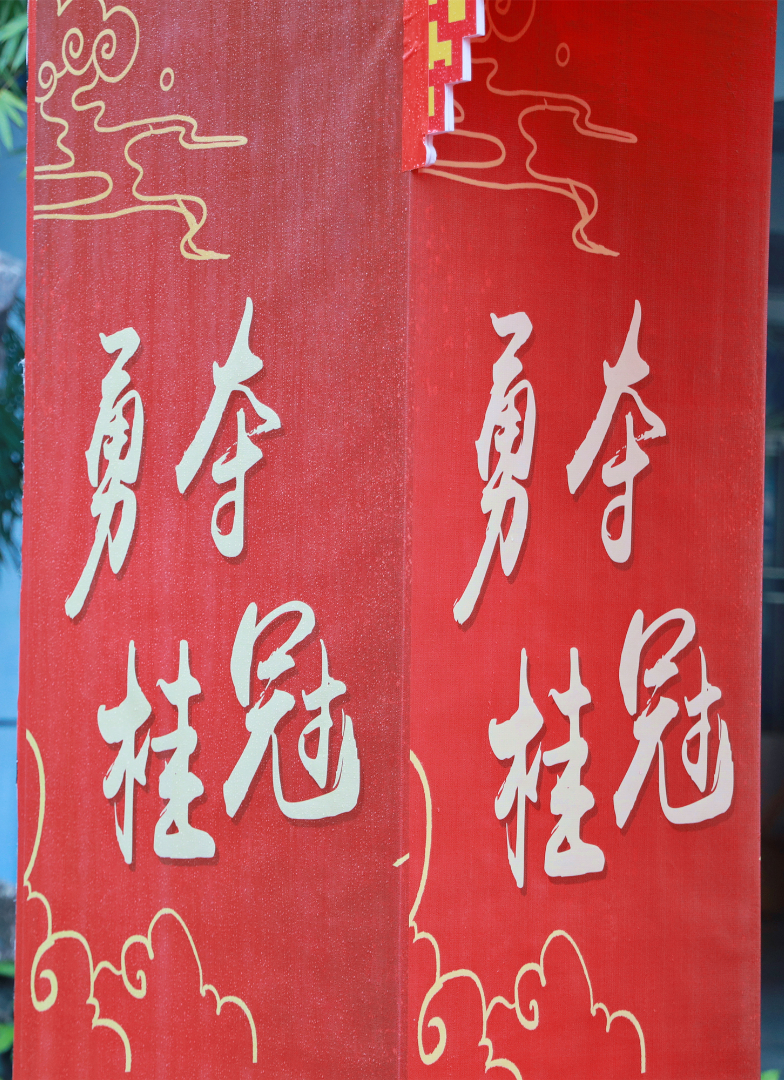 勇夺
桂冠
勇夺
桂冠